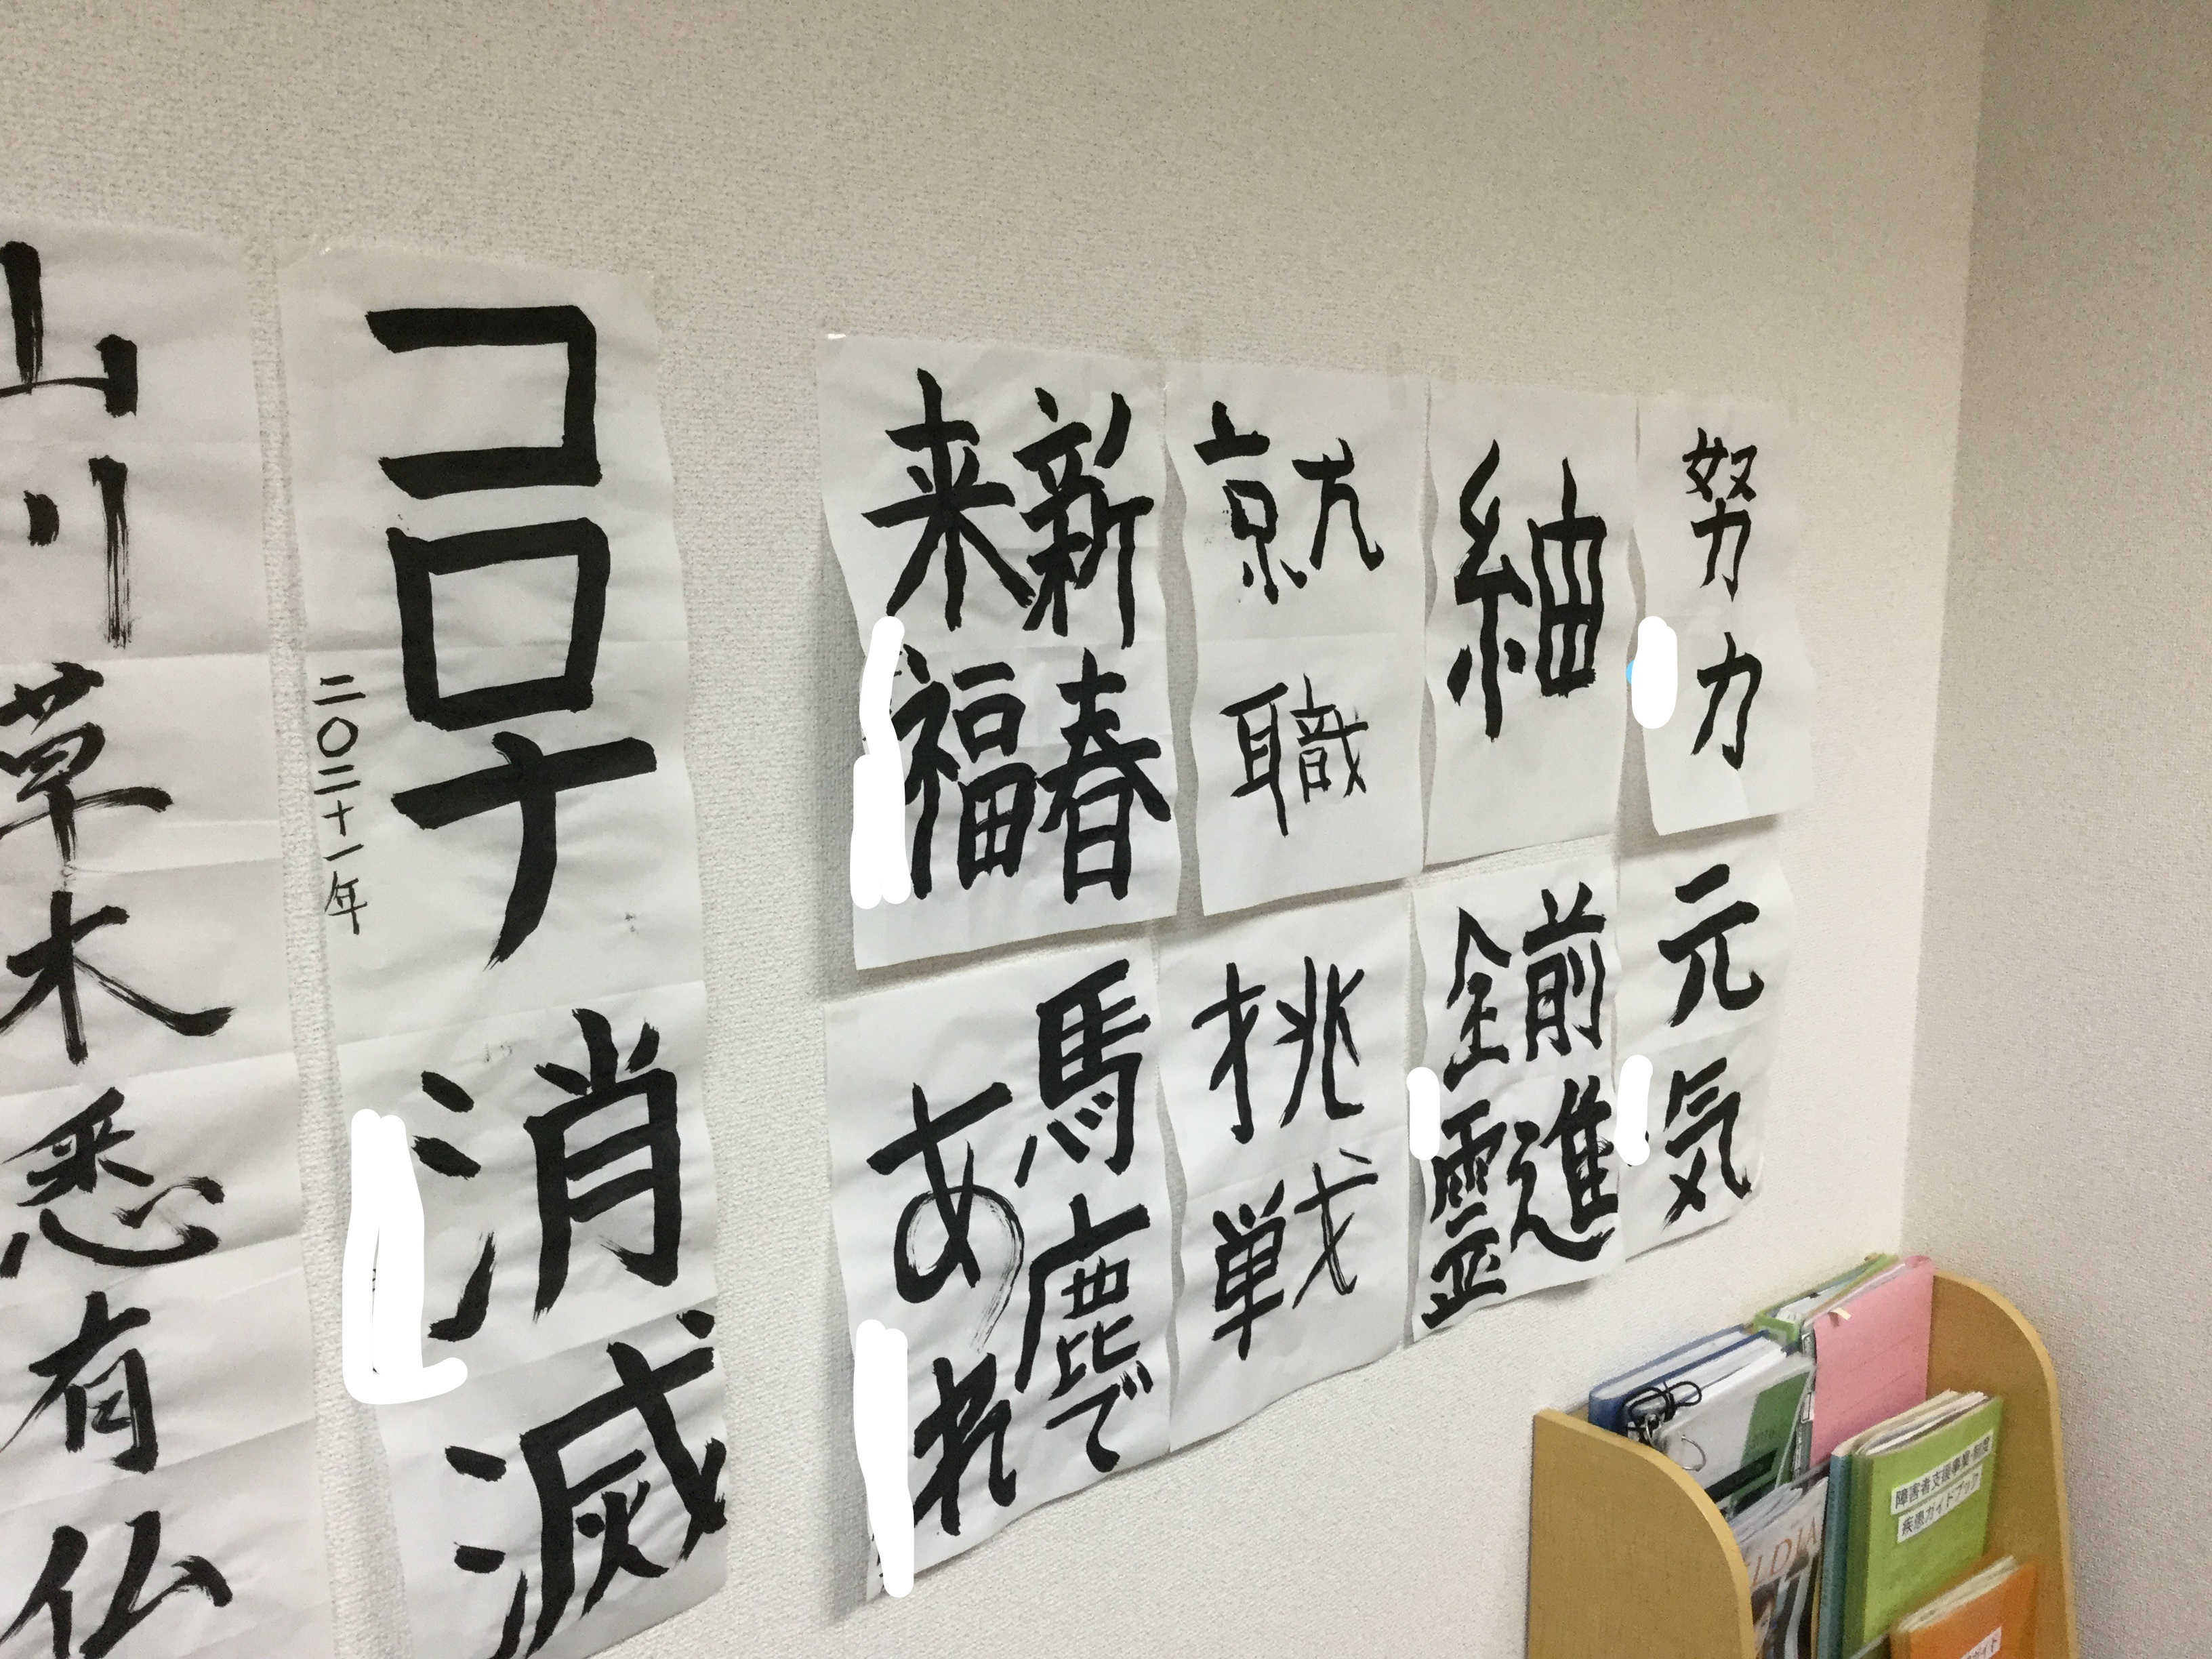 山川草木悉有仏
コロナ消滅
二〇二十一年
新春
来福
就職
紬
努力
馬鹿で
あれ
挑戦
前進
全霊
元気
障害者支援事業・制度
疾患ガイドブック